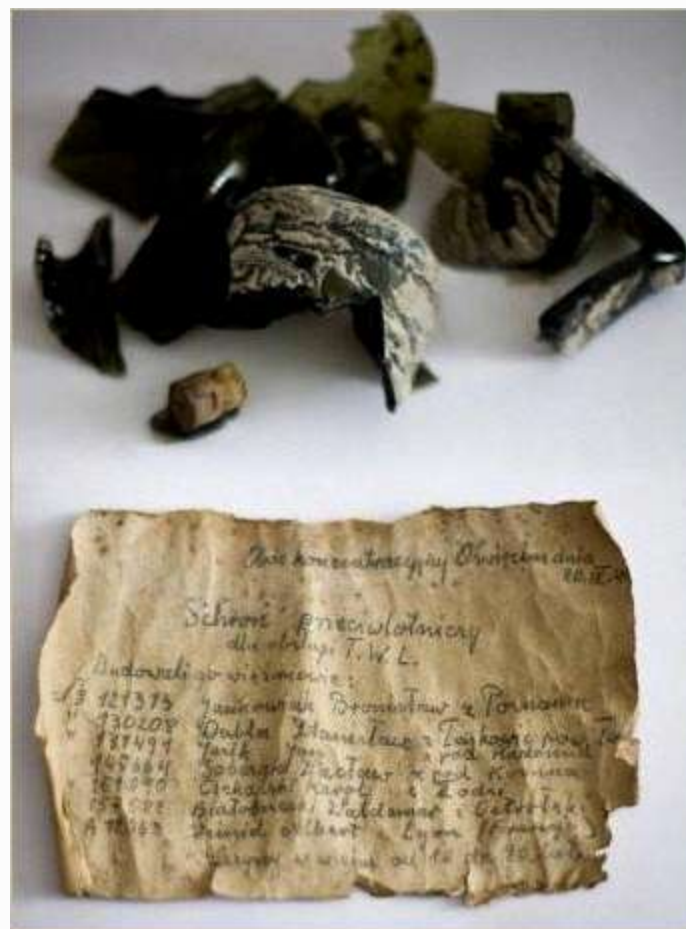 Obóz koncentracyjny Oświęcim dnia
20.IX.
Schron przeciwlotniczy
dla obsługi T.W.L.
Budowali go więźniowie:
121313 Jankowiak Bronisław z Poznania
130208 Dubla Stanisław z pow.
131491 Jasik Jan z pod Radomia
Sobczak Wacław z pod Konina
Czekalski Karol z Łodzi
Białobrzeski Waldemar z Ostrołęki
A 12063 Veissid Albert Lyon
Wszyscy w wieku od 18 do 20 lat